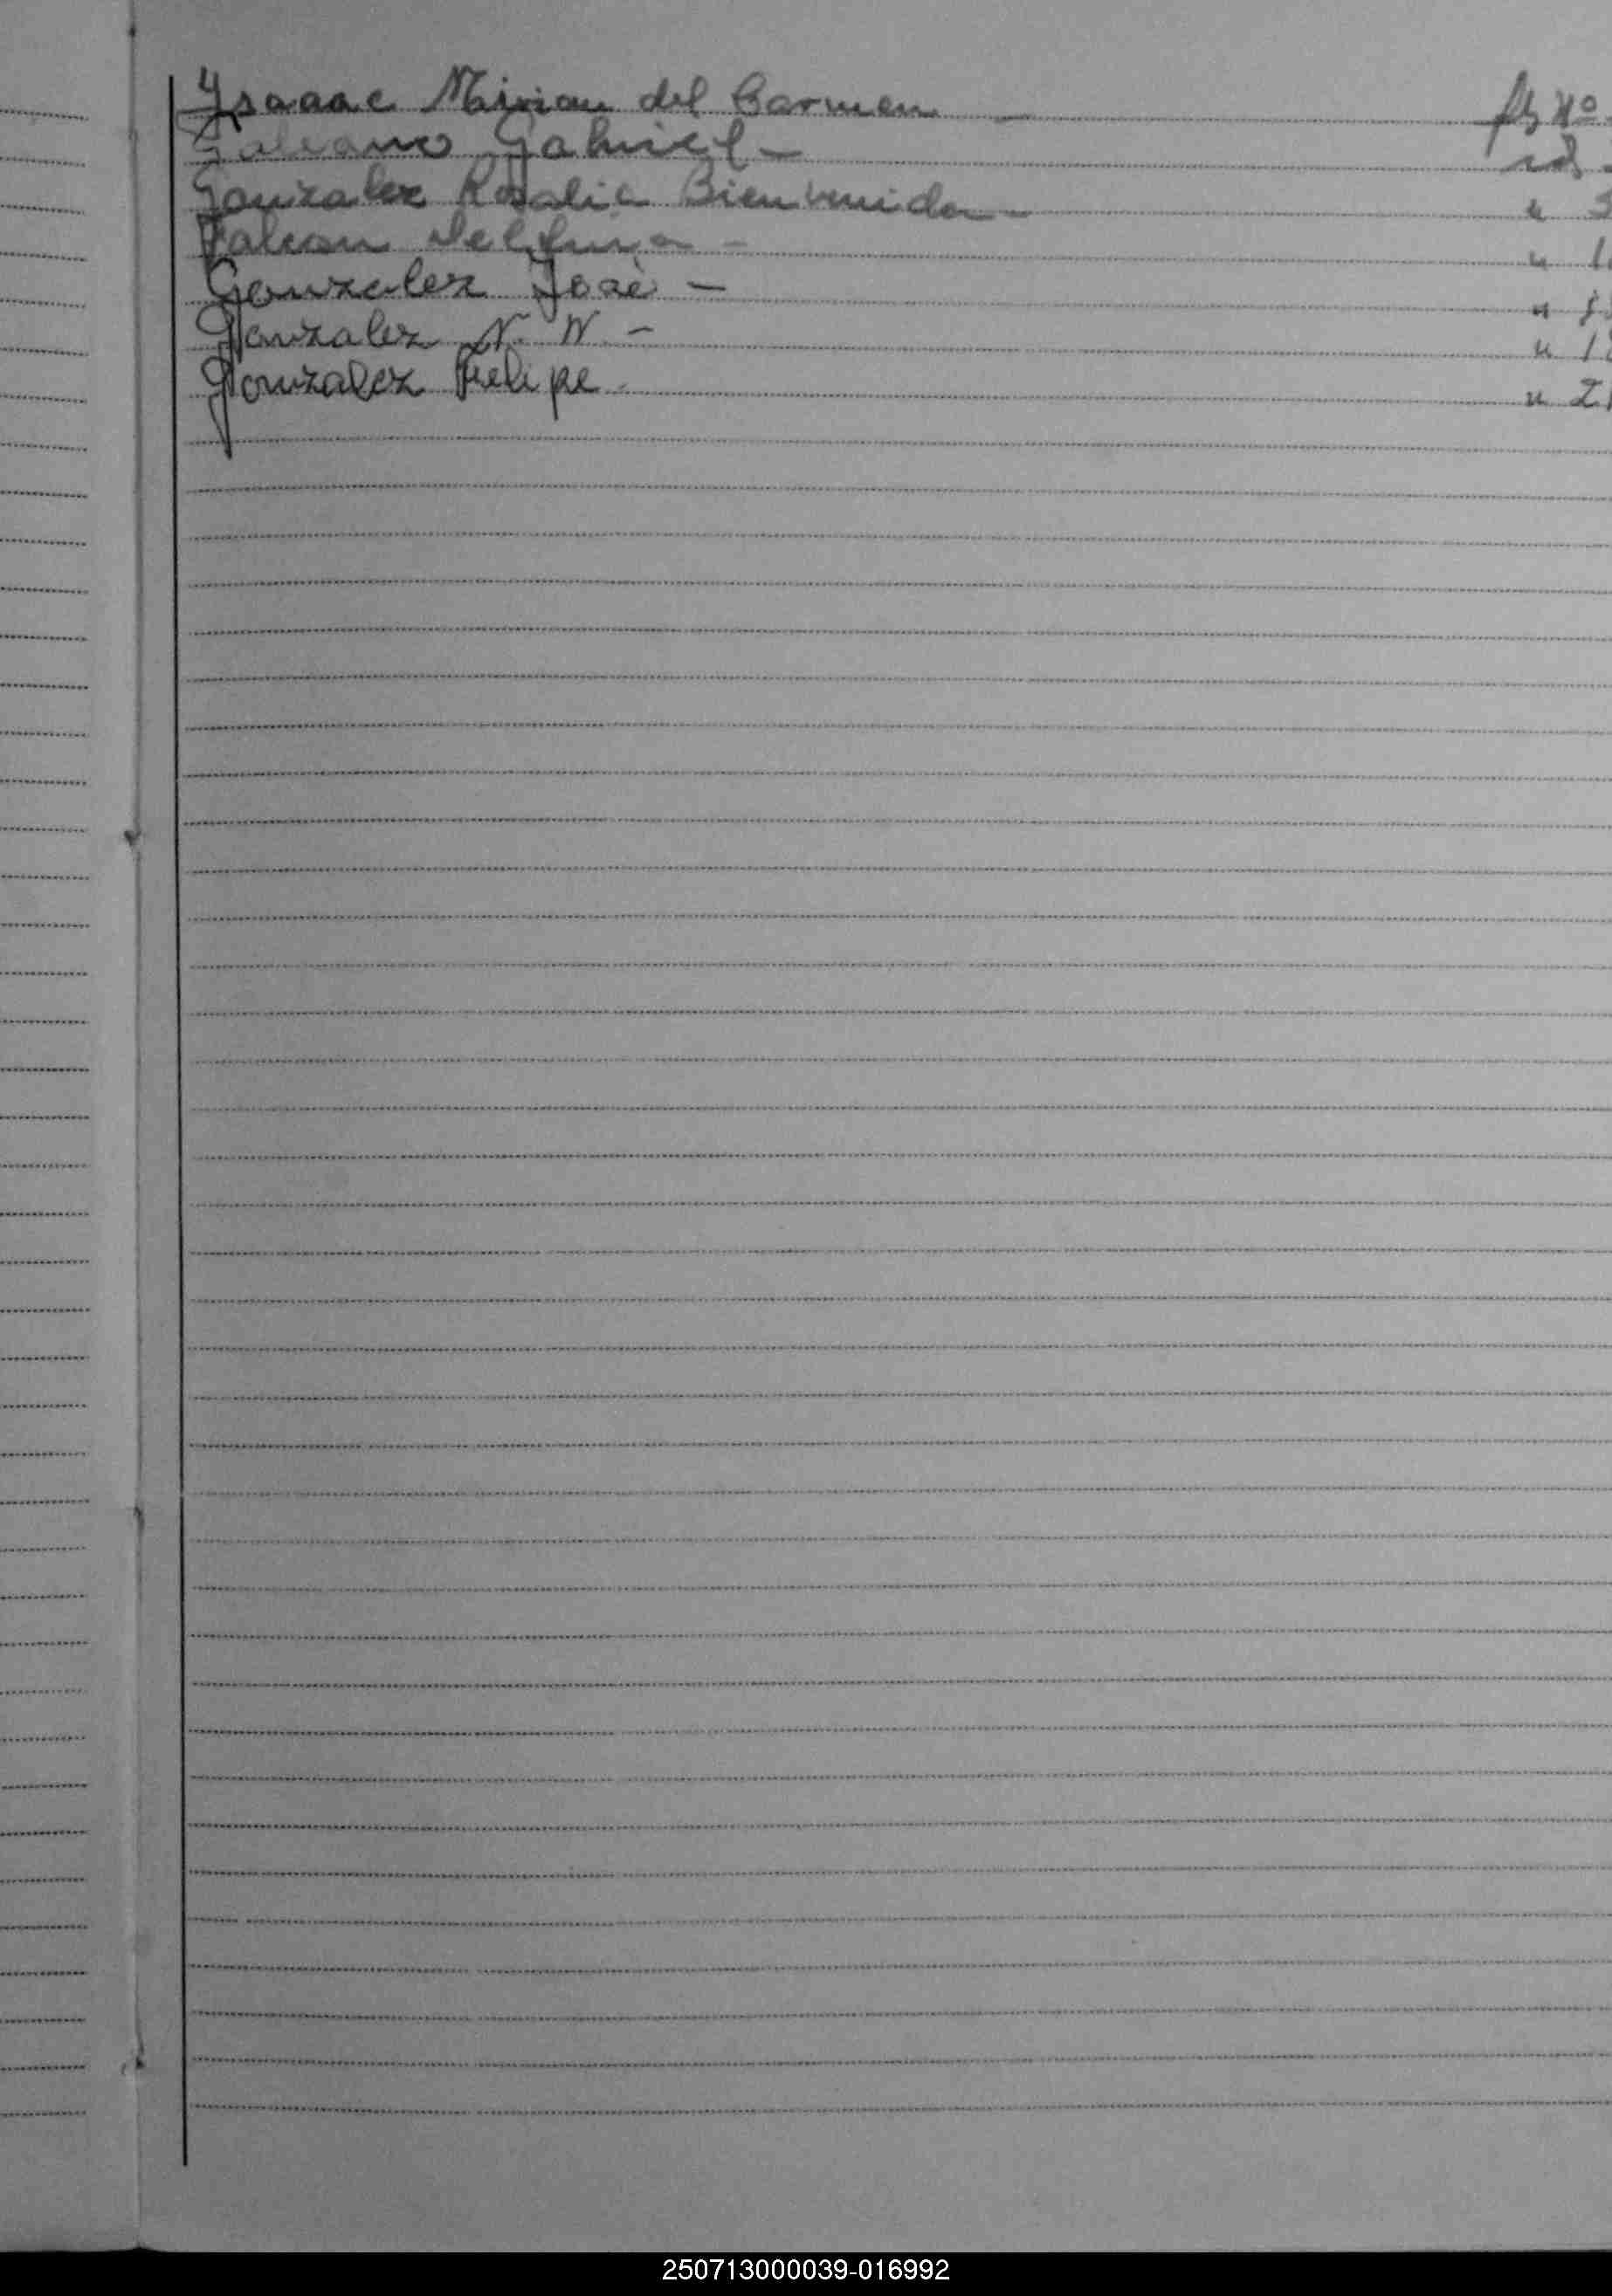 Ysaaac Mirian del Carmen — fls Nº
Galeano Gabriel — id
Gonzalez Rosalia Bienvenida — "
Falcon Delfina — "
Gonzalez José — "
Gonzalez N. N. — "
Gonzalez Felipe - " 2
250713000039-016992